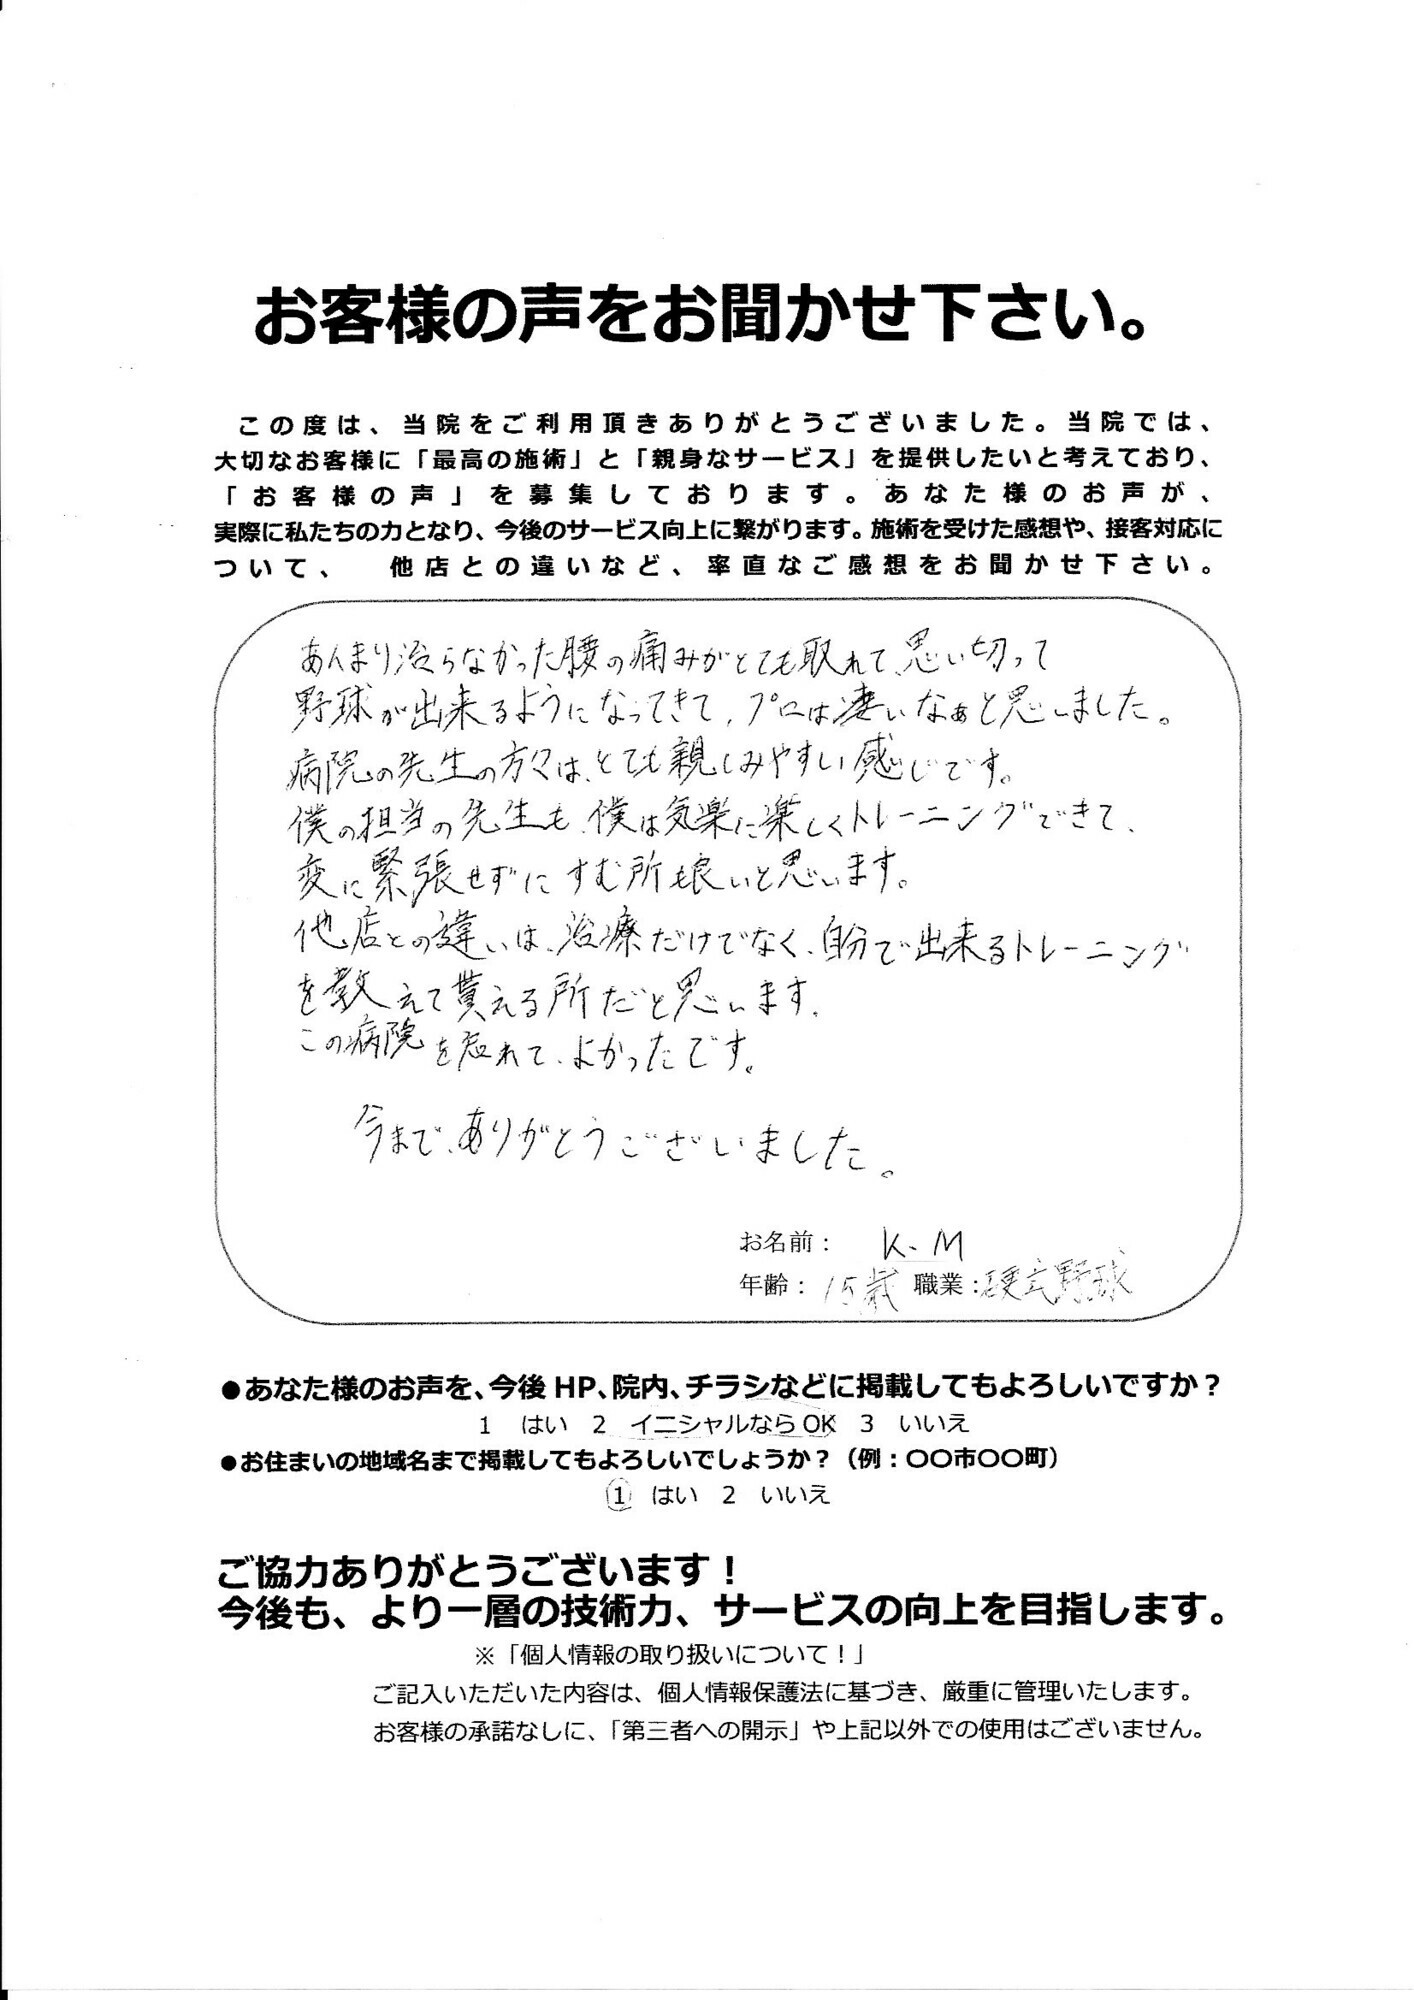 お客様の声をお聞かせ下さい。
この度は、当院をご利用頂きありがとうございました。当院では、
大切なお客様に「最高の施術」と「親身なサービス」を提供したいと考えており、
「お客様の声」を募集しております。あなた様のお声が、
実際に私たちの力となり、今後のサービス向上に繋がります。施術を受けた感想や、接客対応に
ついて、 他店との違いなど、率直なご感想をお聞かせ下さい。
あんまり治らなかった腰の痛みがとても取れて、思い切って
野球が出来るようになってきて、プロは凄いなぁと思いました。
病院の先生の方々は、とても親しみやすい感じです。
僕の担当の先生も、僕は気楽に楽しくトレーニングできて、
変に緊張せずにすむ所も良いと思います。
他店との違いは、治療だけでなく、自分で出来るトレーニング
を教えて貰える所だと思います。
この病院を忘れて、よかったです。
今まで、ありがとうございました。
お名前： K.M
年齢：15歳 職業：硬式野球
●あなた様のお声を、今後 HP、院内、チラシなどに掲載してもよろしいですか？
1 はい 2 イニシャルなら OK 3 いいえ
●お住まいの地域名まで掲載してもよろしいでしょうか？（例：〇〇市〇〇町）
1 はい 2 いいえ
ご協力ありがとうございます！
今後も、より一層の技術力、サービスの向上を目指します。
※「個人情報の取り扱いについて！」
ご記入いただいた内容は、個人情報保護法に基づき、厳重に管理いたします。
お客様の承諾なしに、「第三者への開示」や上記以外での使用はございません。